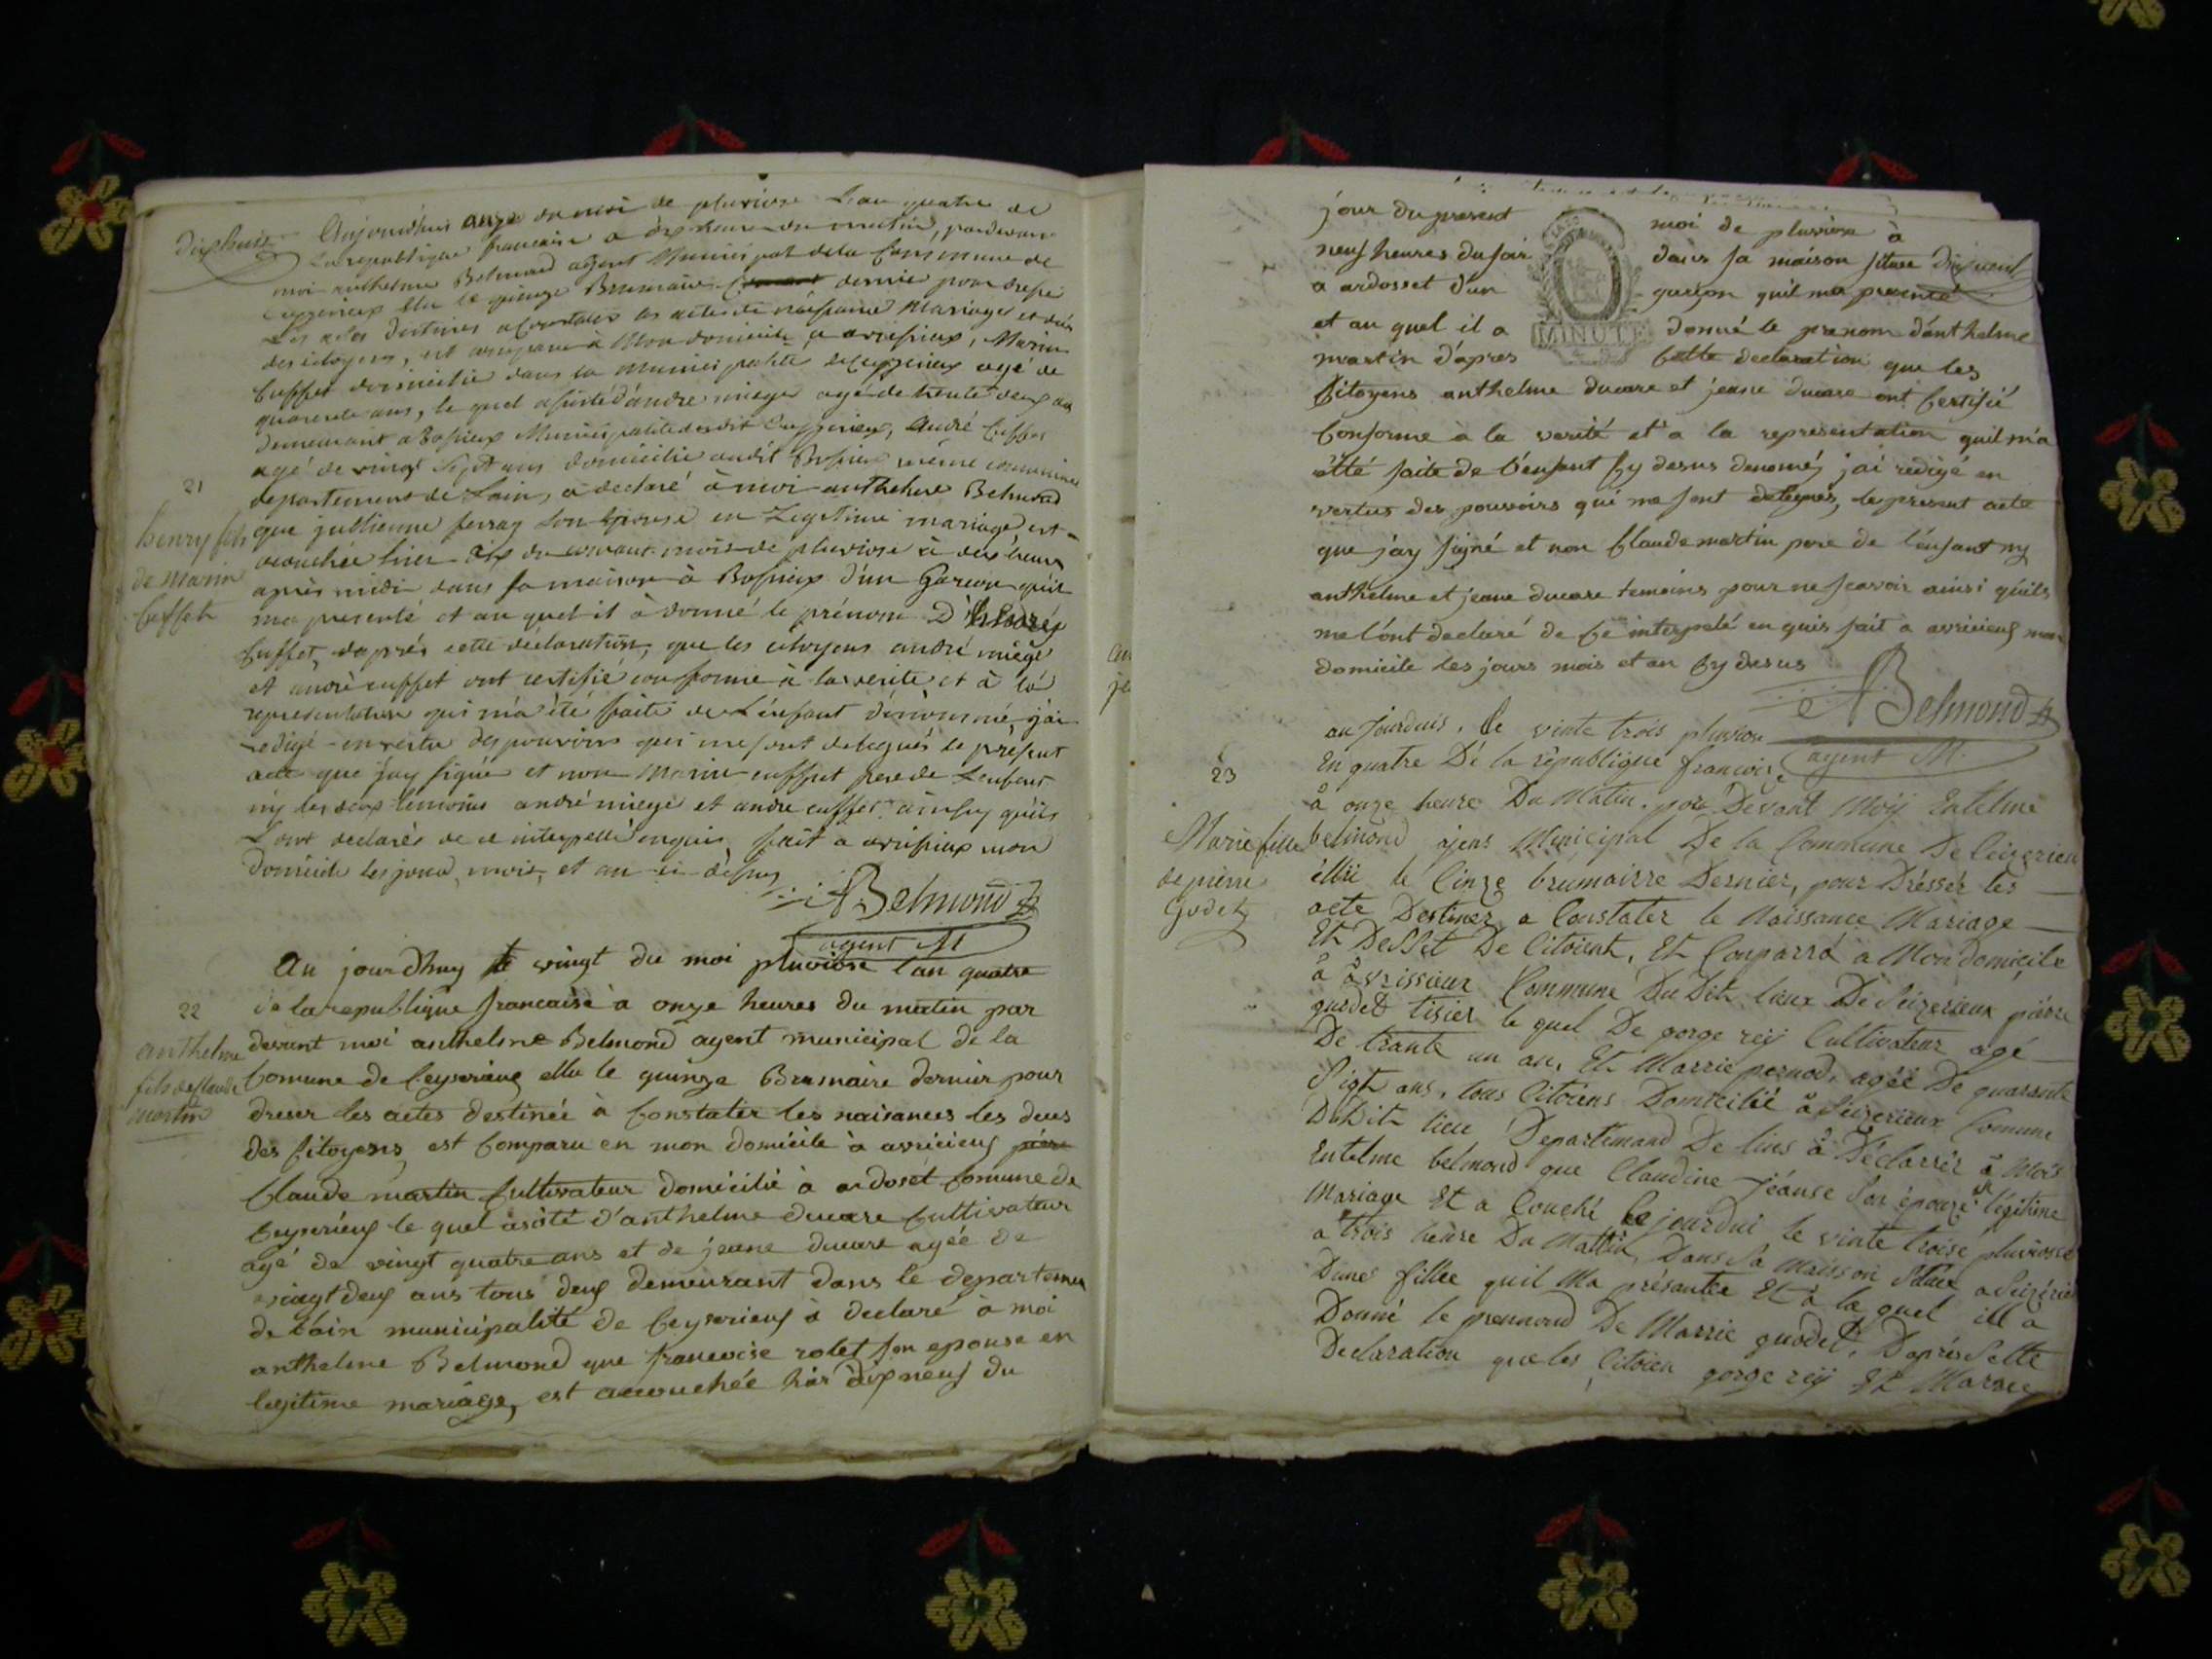 dixhuit
Aujourd'huis onze du moi de pluviose L'an quatre de
La republique francaise a dix heures du matin, pardevant
moi anthelme Belmond agent Municipal de la Commune de
Ceyzerieux Elu le quinze Brumaire dernier pour dresser
Les actes destinés a Constater les actes de naissance Mariages et décès
des citoyens, est comparu à Mon domicile a avrissieux, Marin
Cuffet domicilié dans la municipalité de Ceyzerieux agé de
quarente ans, le quel assisté d'andre miege agé de trente deux ans
demeurant a Bossieux Municipalité dudit Ceyzerieux, André Cuffet
agé de vingt Sept ans domicilié audit Bossieux même commune
21
departement de Lain, a declaré à moi anthelme Belmond
henry fils
que jullienne ferray son Epouse en Legitime mariage est
de Marin
acouchée hier dix du courant mois de pluviose à deux heures
Cuffet
après midi dans sa maison à Bossieux d'un Garçon qu'il
ma presenté et au quel il à donné le prénom
Cuffet, daprés cette déclaration, que les citoyens andré miège
et andré cuffet ont certifié conforme à la verité et à la
representation qui m'a été faite de L'enfant dénommé, j'ai
redigé en vertu des pouvoirs qui me sont delegués le présent
acte que j'ay signé et non Marin cuffet pere de L'enfant
ny les deux temoins andré miege et andre cuffet ainssy qu'ils
L'ont declarés de ce interpellé enquis fait a avrissieux mon
domicile les jour, mois, et an ci dessus
ABelmond
agent M
Au jourdhuy le vingt du moi pluviose l'an quatre
22
de la republique francaise à onze heures du matin par
anthelme
devant moi anthelme Belmond agent municipal de la
fils de Claude
Comune de Ceyserieux ellu le quinze Brumaire dernier pour
martin
dreser les actes destinée à Constater les naisances les deces
des Citoyens, est Comparu en mon domicile à avricieux père
Claude martin Cultivateur domicilié à ardoset Comune de
Ceyserieux le quel asisté d'anthelme ducare Cultivateur
agé de vingt quatre ans et de jeane ducare agée de
vingt deux ans tous deux demeurant dans le departemen
de l'ain municipalité de Ceyserieux à declaré à moi
anthelme Belmond que francoise rolet son epouse en
legitime mariage, est acouchée hiér dix neuf du
jour du present moi de pluviose à
neuf heures du soir dans sa maison situee
a ardosset d'un garçon quil ma presenté
et au quel il a donné le prenom d'anthelme
MINUTE
martin d'apres Cette declaration que les
Citoyens anthelme ducare et jeane ducare ont Certifié
Conforme à la verité et a la representation quil m'a
étté faite de l'enfant Cy desus denomé, jai redigé en
vertus des pouvoirs qui me sont delegués, le present acte
que j'ay signé et non Claude martin pere de l'enfant ny
anthelme et jeane ducare temoins pour ne scavoir ainsi quils
me l'ont declaré de Ce interpelé enquis fait a avricieux mon
domicile les jours mois et an Cy desus
ABelmond
agent M.
au jourduis. le vinte trois pluviose
23
En quatre Dé la republique francoise
à onze heure Du Matin. par Devant Moÿ Entelme
Marie fille
belmond ajens Municipal De la Commune De Ceizerieu
de pierre
éllü le Cinze brumairre Dernier, pour Dréssér les
Godet
acte Destinez a Constater le Naissance Mariage
Et Desset De Citoient, Et Comparrá à Mon domicile
à avrissieux Commune Du Dit lieux De Seizerieux pièrre
guodet tisier le quel De gorge reÿ Cultivateur agé
De trante un an, Et Marrie pernod, agéé De quarante
Sigt ans, tous Citoiens Domicilié à Seizerieux Comune
Du Dit lieu Departemand De lins à Déclarrér à Mois
Entelme belmond que Claudine jéanse Son épouze en légitime
Mariage Et a Couché Ce jourdui le vinte troise pluviose
a trois heure Du Mattin, Dans Sa Maison Situéé a Seizérieu
Dune fillee quil Ma présantee Et à la quel ill a
Donné le prennond De Marrie guodet, Daprés Sette
Declaration que les Citoien gorge reÿ Et Marrie